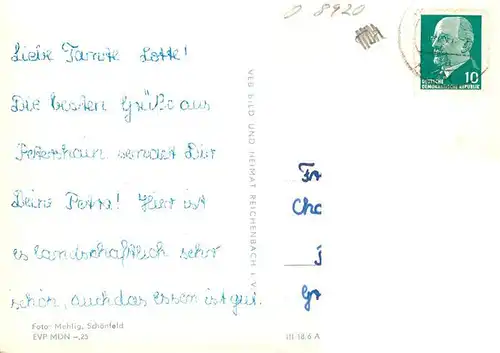 D 8920
Liebe Tante Lotte!
Die besten Grüße aus
Petershain sendet Dir
Deine Petra! Hier ist
es landschaftlich sehr
schön, auch das Essen ist gut.
Foto: Mehlig, Schönfeld
EVP MDN -,25
VEB BILD UND HEIMAT REICHENBACH i. V.
10
DEUTSCHE
DEMOKRATISCHE REPUBLIK
Fr
Cha
j
Gr
III/18/6 A